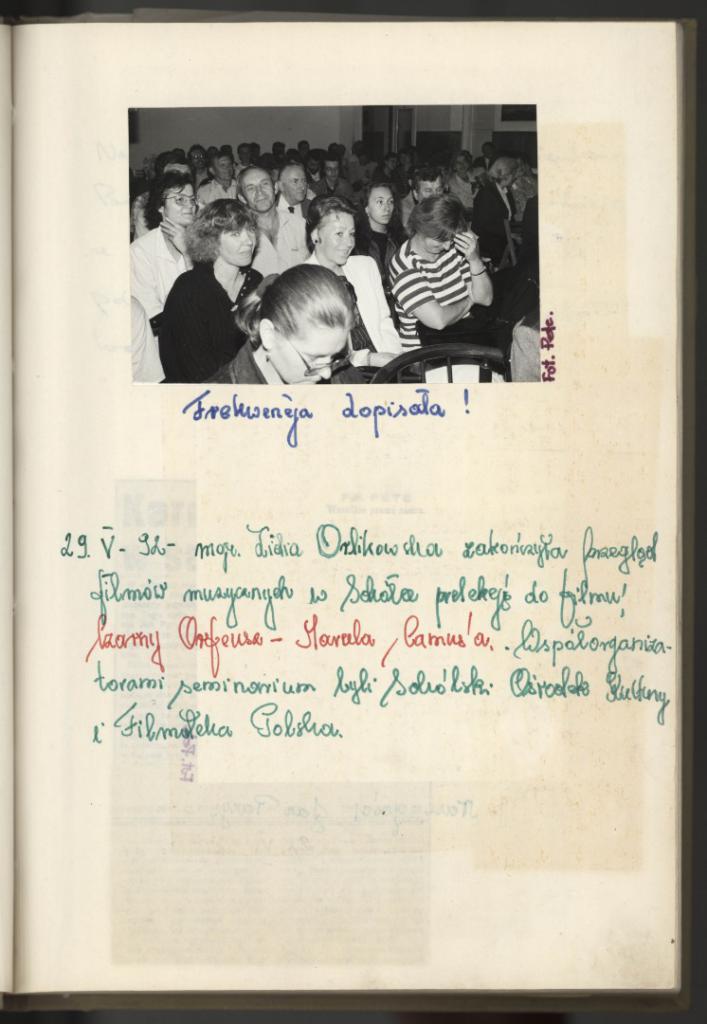 Fot. Petc.
Frekwencja dopisała !
29. V - 92 - mgr. Lidia Orlikowska zakończyła przegląd
filmów muzycznych w Sokółce prelekcją do filmu!
Czarny Orfeusz - Marcela Camus'a. Współorganiza-
torami seminarium byli Sokólski Ośrodek Kultury
i Filmoteka Polska.